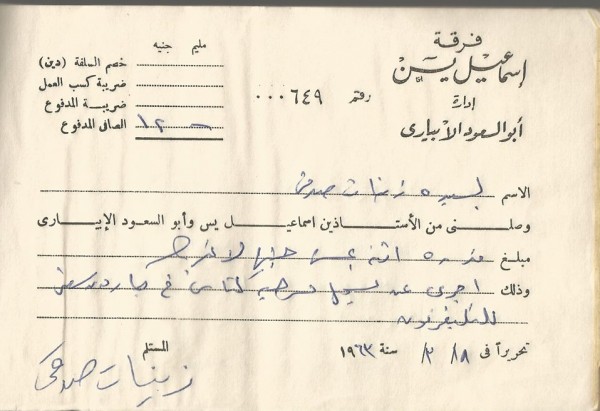 فرقة
اسماعيل يس
إدارة
أبو السعود الأبيارى
رقم ٠٠٠٦٤٩
مليم جنيه
خصم السلفة (دين)
ضريبة كسب العمل
ضريبة المدفوع
الصافى المدفوع ١٢ -
الاسم السيده زينات صدقى
وصلنى من الأستاذين اسماعيل يس وأبو السعود الإبيارى
مبلغ وقدره اثنى عشر جنيها لا غير
وذلك اجرى عن تسجيل مسرحية كناس فى جاردن سيتى
للتليفزيون
تحريراً فى ١٨/ ٣/ سنة ١٩٦٣
المستلم
زينات صدقى